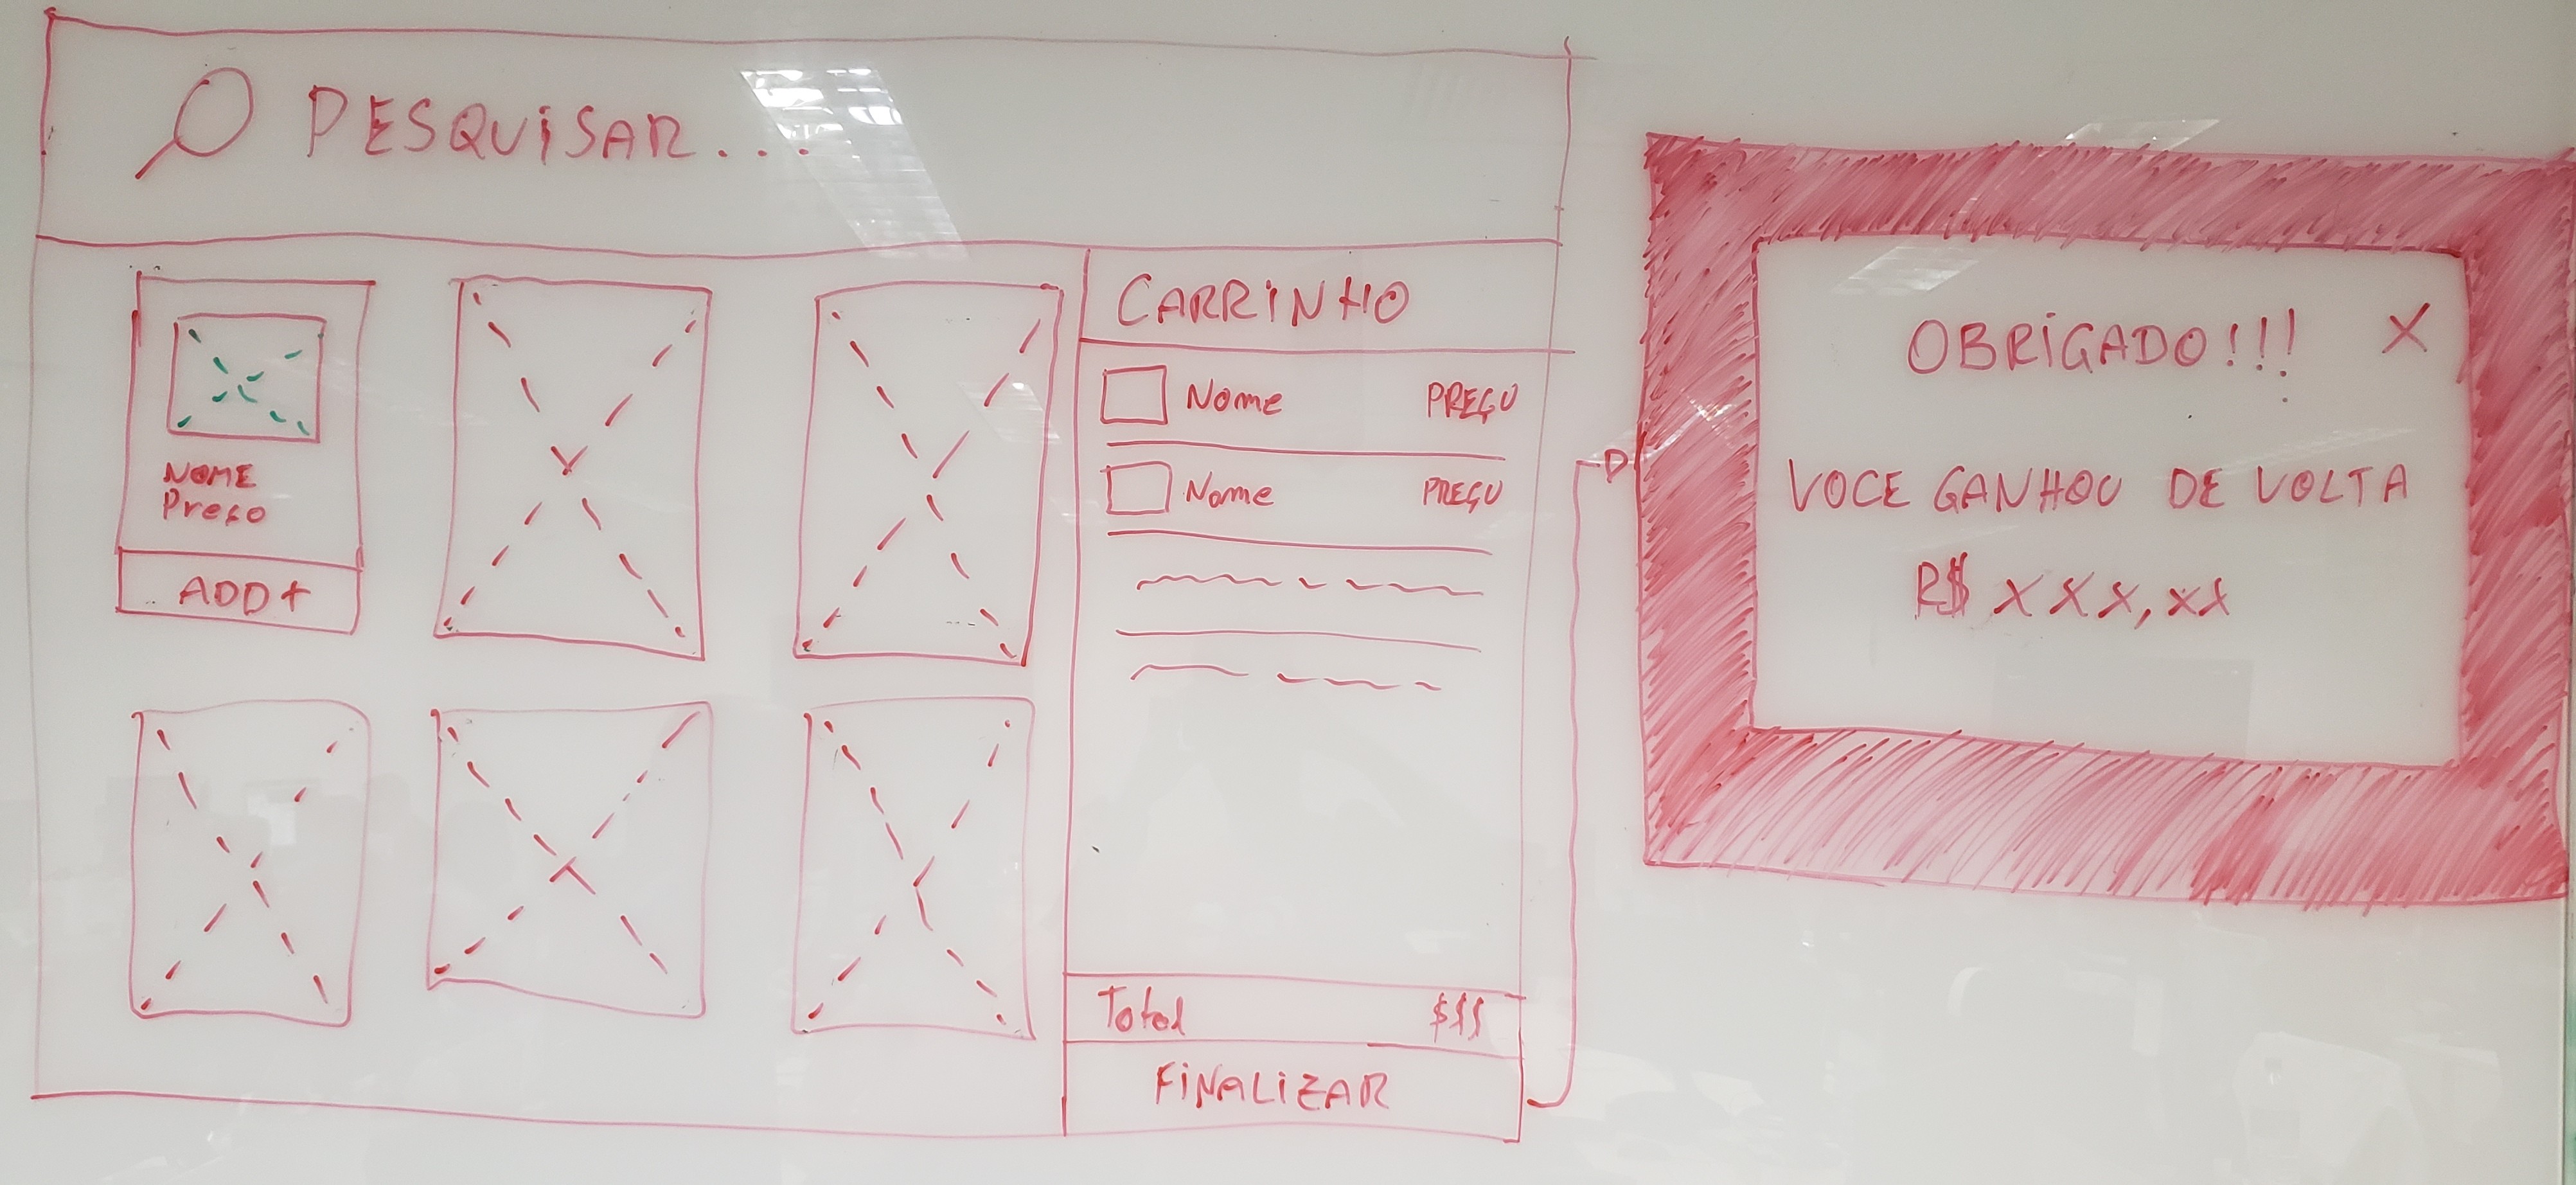 PESQUISAR...
NOME
Preço
ADD+
CARRINHO
Nome PREÇO
Nome PREÇO
Total $$$
FINALIZAR
OBRIGADO!!! X
VOCE GANHOU DE VOLTA
R$ XXX,XX